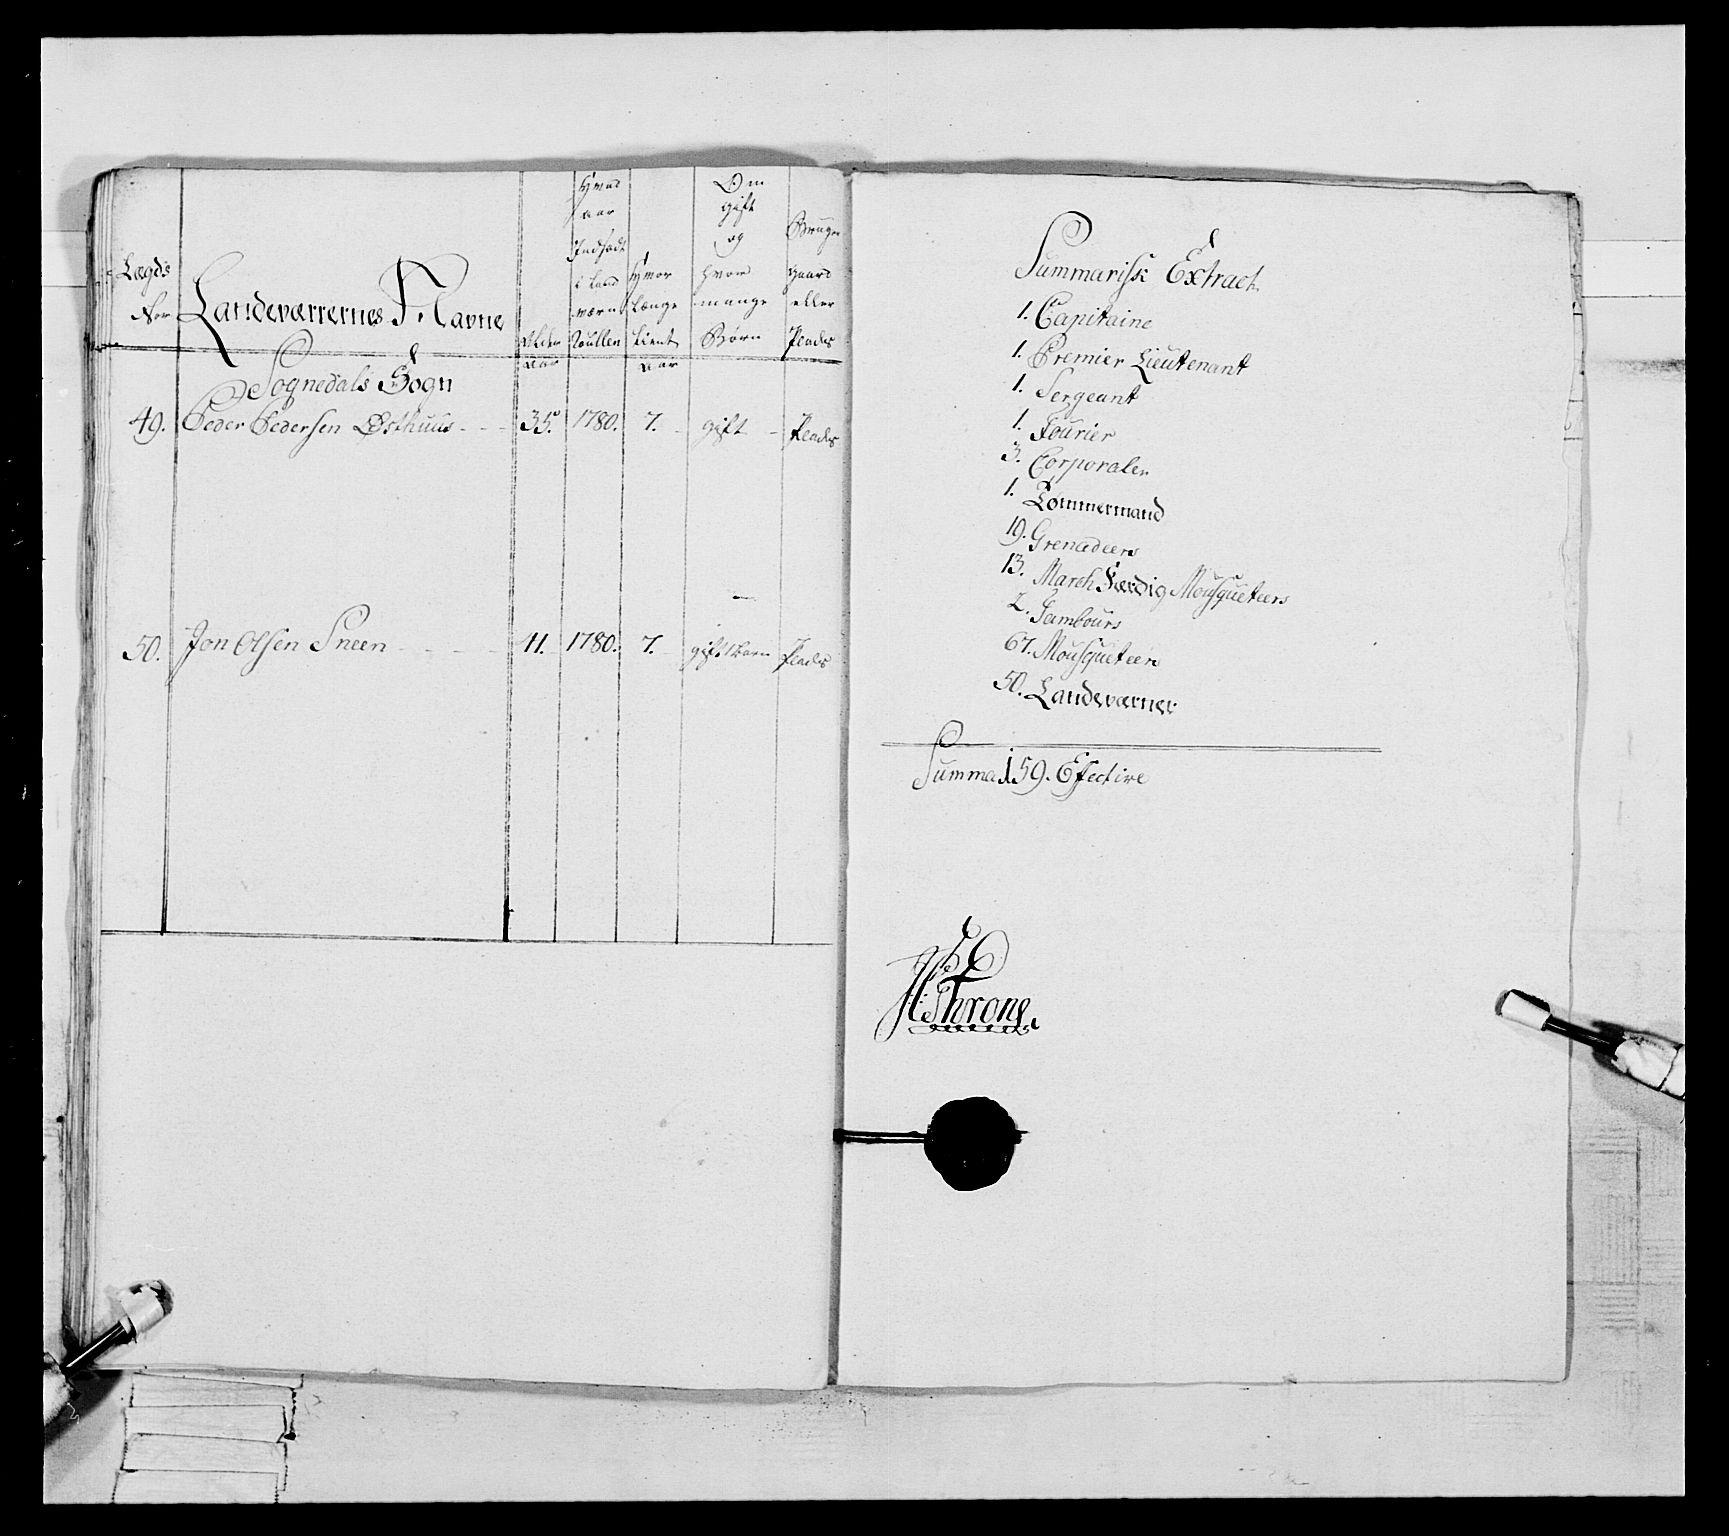 Lægds Nor
Landeværrernes Navne
Alder aar
Hvad aar Indsadt i Land værn Roullen
Hvor længe tient aar
Om gift og hvor mange Børn
Bruger gaard eller Plads
Sognedals Sogn
49. Peder Pedersen Østhuus 35. 1780. 7. gift Plads
50. Jon Olsen Sneen 41. 1780. 7. gift 1 barn Plads
Summarisk Extract
1. Capitaine
1. Premier Lieutenant
1. Sergeant
1. Fourier
3. Corporaler
1. Tömmermand
19. Grenadeers
13. March Færdig Mousqueteers
2. Tambours
67. Mousqueteers
50. Landeværner
Summa 159. Effective
Throne